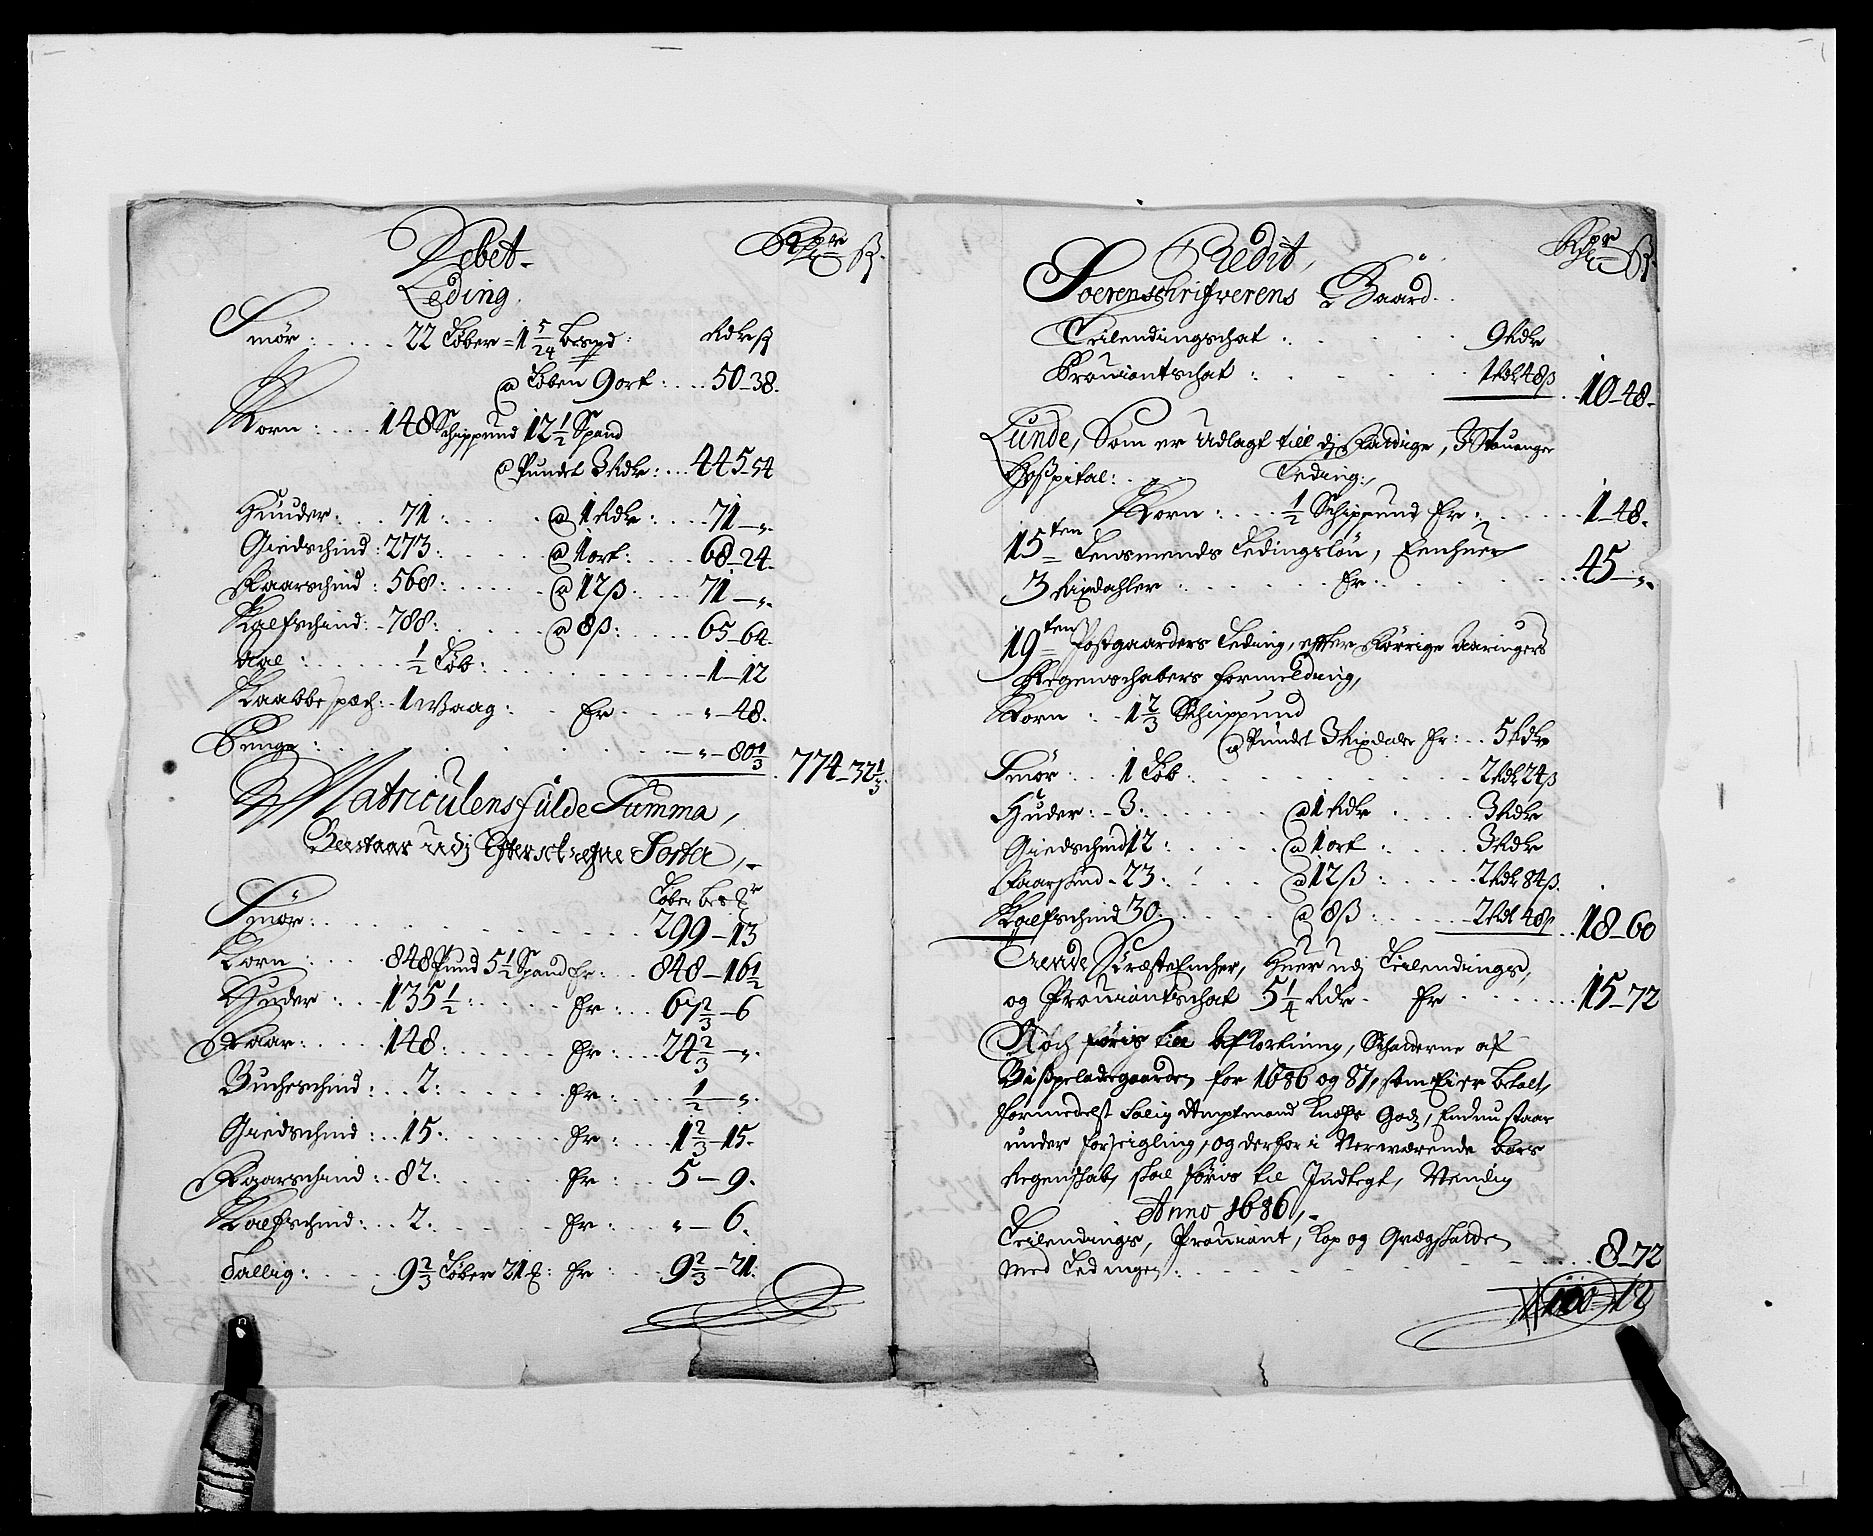 Debet
Rdr ß
Leding.
Smør: 22 Løber = 1 5/24 bespd: Rdr ß
@ Løben 9 ort: 50 - 38.
Korn: 148 Schippund 12 1/2 Spand
@ Pundet 3 Rdr: 445 - 54
Huuder: 71: @ 1 Rdr: 71 - „
Giedschind: 273: @ 1 ort: 68 - 24.
Faarschind: 568: @ 12 ß: 71 - „
Kalfschind: 788: @ 8 ß: 65 - 64.
Aal: 1/2 Løb: 1 - 12
Kaabbespech: 1 Waag: Er „ - 48.
Penge: „ - 80 1/3
774 - 32 1/3.
Matriculens fulde Summa,
Bestaar udj Efterschrefne Sorter,
Løber
Smør: 299 - 13
Korn: 848 Pund 5 1/2 Spand Er: 848 - 16 1/2
Huder: 135 1/2: Er: 67 2/3 - 6
Faar: 148: Er: 24 2/3 - „
Bucheschind: 2: Er: 1/2 - „
Giedschind: 15: Er: 1 2/3 - 15.
Faarschind: 82: Er: 5 - 9.
Kalfschind: 2: Er: „ - 6.
Tallig: 9 2/3 Løber 21 Er: 9 2/3 - 21.
Credit,
Rdr ß
Soerenschrifverens Gaard.
Leilendingschat: 9 Rdr
Prouiantschat: 1 Rdr 48 ß 10 - 48.
Lunde, Som er Udlagt till dj Fattige, J Stauanger
Hoßpital: Leding:
Korn: 1/2 Schippund Er: 1 - 48.
15 ten Lensmends Ledingsløn, Eenhuer
3 Rixdahler: Er: 45 - „
19 ten Postgaarders Leding, efter Forrige Aaringers
Regenschabers formelding,
Korn: 1 2/3 Schippund
@ Pundet 3 Rixdaler Er: 5 Rdr
Smør: 1 Løb: 2 Rdr 24 ß
Huder: 3: @ 1 Rdr 3 Rdr
Giedschind 12: @ 1 ort 3 Rdr
Faarskind 23: @ 12 ß: 2 Rdr 84 ß.
Kalfschind 30: @ 8 ß: 2 Rdr 48 ß 18 - 60
Trende Huer udj Leilendings,
og Prouiantschat 5 1/4 Rdr Er 15 - 72
Noch føris till Afkortning, Schatterne af
Bißpeladegaarden for 1686 og 87, som Ei er betalt,
formedelst Salig Amptmand Knoffs Godz, Endnu staar
under forseigling, og derfor i Nerwærende
Regenskab, skal føris til Indtegt, Nemlig
Anno 1686,
Leilendings, Prouiant, Kop og Qvægskatten
med Ledingen: 8 - 72
100 - 12